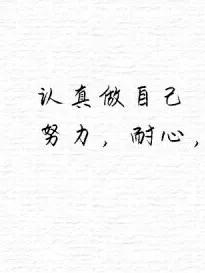 认真做自己
努力，耐心，